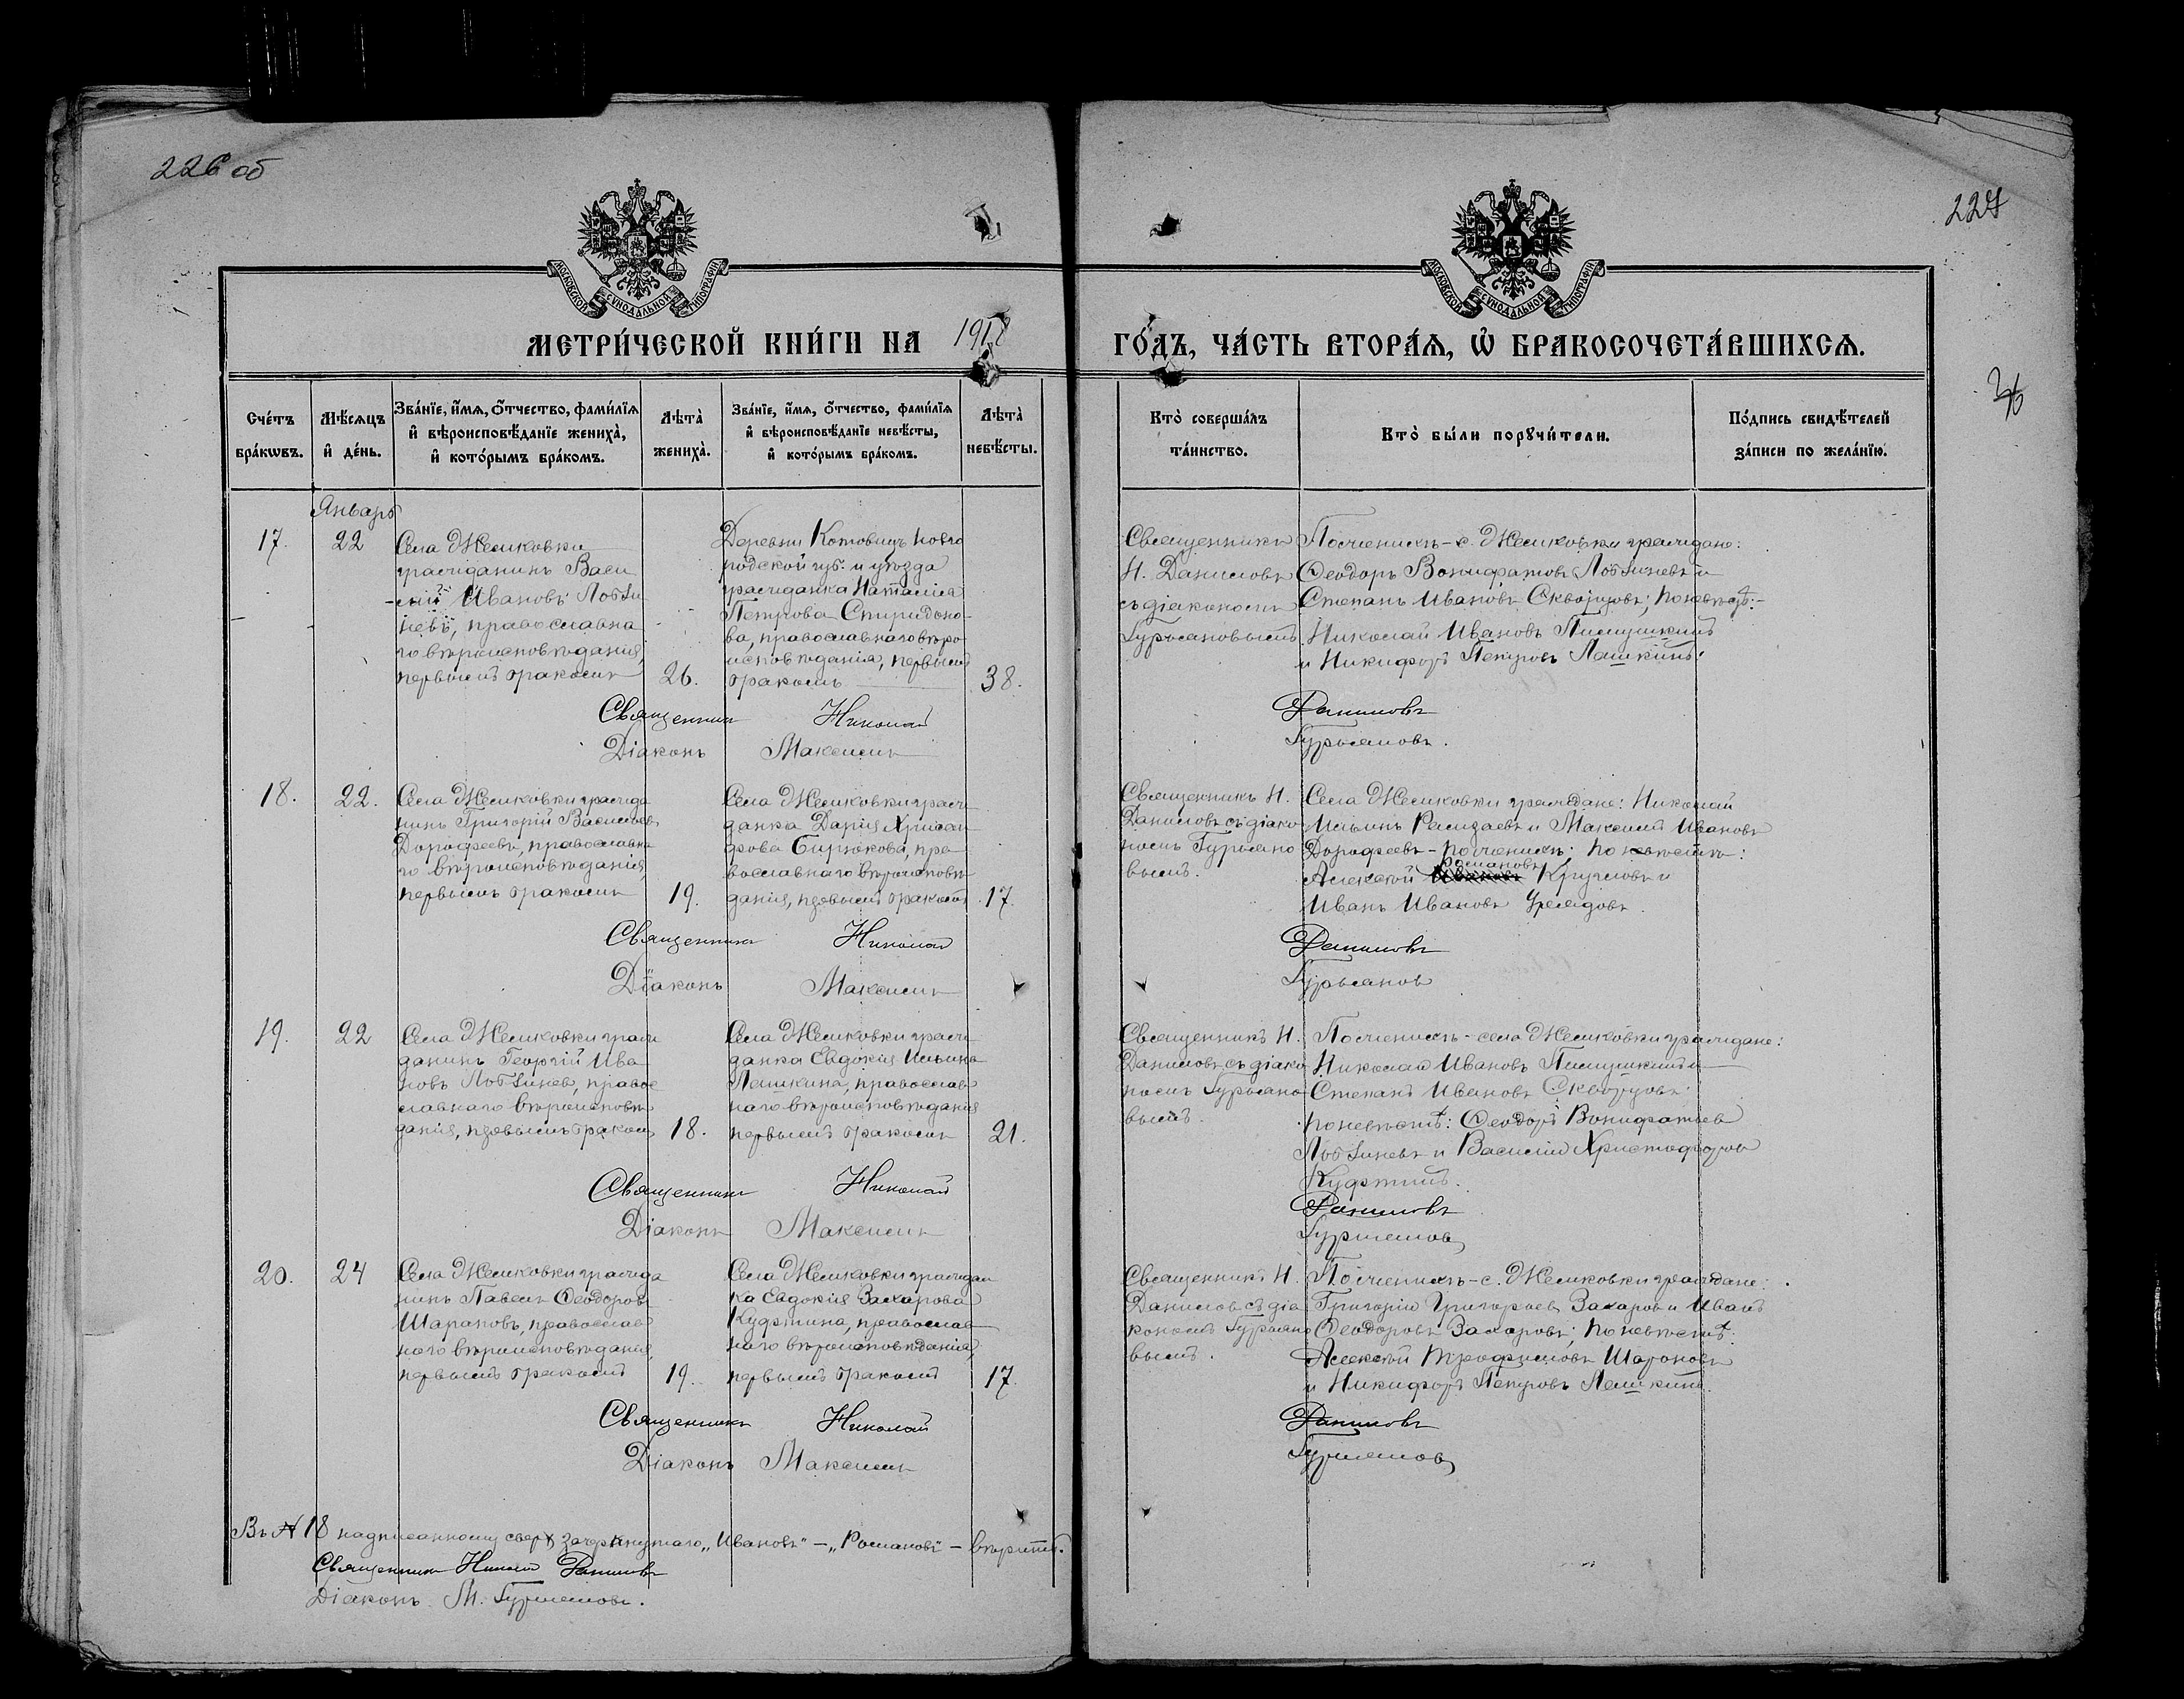 226 об
227
МОСКОВСКОЙ СѴНОДАЛЬНОЙ ТИПОГРАФІИ
МОСКОВСКОЙ СѴНОДАЛЬНОЙ ТИПОГРАФІИ
МЕТРИ́ЧЕСКОЙ КНИ́ГИ НА 1918 ГО́ДЪ, ЧА́СТЬ ВТОРА́Я, Ѡ҆ БРАКОСОЧЕТА́ВШИХСЯ.
Сче́тъ бра́кѡвъ.
Мѣ́сяцъ и҆ де́нь.
Зва́нїе, и҆́мя, ѻ҆́тчество, фами́лїя
и҆ вѣроисповѣ́данїе жениха̀,
и҆ кото́рымъ бра́комъ.
Лѣта̀ жениха̀.
Зва́нїе, и҆́мя, ѻ҆́тчество, фами́лїя
и҆ вѣроисповѣ́данїе невѣ́сты,
и҆ кото́рымъ бра́комъ.
Лѣта̀ невѣ́сты.
Кто̀ соверша́лъ
та́инство.
Кто̀ бы́ли порꙋчи́тели.
По́дпись свидѣ́телей
за́писи по жела́нїю.
Январь
17.
22
Села
гражданинъ Васи
лій Ивановъ
невъ, православна
го вѣроисповѣданія,
первымъ бракомъ
26.
Деревни Котовицъ Новго
родской губ. и уѣзда
гражданка Наталія
Петрова Спиридоно
ва, православнаго вѣро
исповѣданія, первымъ
бракомъ
38.
Священникъ
Н. Даниловъ
съ діакономъ
Гурьяновымъ
Ѳеодоръ Вонифатовъ
Степанъ Ивановъ Скворцовъ; по невѣстѣ:
Николай Ивановъ
и Никифоръ Петровъ
Священникъ Николай Даниловъ
Діаконъ Максимъ Гурьяновъ.
18.
22.
Села гражда
нинъ Григорій Васильевъ
Дорофеевъ, православна
го вѣроисповѣданія,
первымъ бракомъ
19.
Села граж
данка Дарія Хрисан
фова Бирюкова, пра
вославнаго вѣроисповѣ
данія, первымъ бракомъ
17.
Священникъ Н.
Даниловъ съ діако
номъ Гурьяно
вымъ.
Села граждане: Николай
Ильинъ и Максимъ Ивановъ
Дорофеевъ - по женихѣ; по невѣстѣ:
Романовъ
Алексей Ивановъ Кругловъ и
Иванъ Ивановъ
Священникъ Николай Даниловъ
Діаконъ Максимъ Гурьянов
19.
22
Села граж
данинъ Георгій Ива
новъ правос
лавнаго вѣроисповѣ
данія, первымъ бракомъ
18.
Села граж
данка Евдокія Ильина
православ
наго вѣроисповѣданія
первымъ бракомъ
21.
Священникъ Н.
Даниловъ съ діако
номъ Гурьяно
вымъ.
По женихѣ - села граждане:
Николай Ивановъ
Степанъ Ивановъ Скворцовъ;
по невѣстѣ: Ѳеодоръ Вонифатьев
и Василій Христофоров
Куфтинъ.
Священникъ Николай Даниловъ
Діаконъ Максимъ Гурьянов
20.
24
Села гражда
нинъ Павелъ Ѳеодоровъ
Шароновъ, православ
наго вѣроисповѣданія,
первымъ бракомъ
19.
Села граждан
ка Евдокія Захарова
Куфтина, православ
наго вѣроисповѣданія,
первымъ бракомъ
17.
Священникъ Н.
Данилов съ діа
кономъ Гурьяно
вымъ.
По женихѣ - с. граждане:
Григорій Григорьев Захаров и Иванъ
Ѳеодоровъ Захаровъ; по невѣстѣ:
Алексѣй Трофимовъ Шароновъ
и Никифоръ Петровъ
Священникъ Николай Даниловъ
Діаконъ Максимъ Гурьянов
Въ № 18 надписанному сверх зачеркнутаго „Ивановъ" – „Романовъ" – вѣрить.
Священникъ Николай Даниловъ
Діаконъ М. Гурьяновъ.